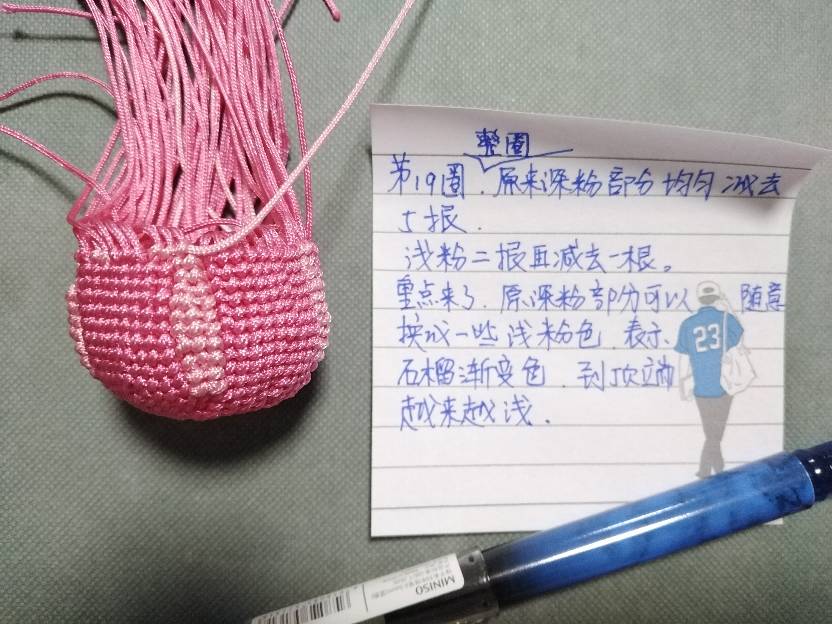 整圈
第19圈.原来深粉部分均匀减去
5根.
浅粉二根再减去一根。
重点来了.原深粉部分可以随意
换成一些浅粉色.表示
石榴渐变色.到顶端
越来越浅.
23
MINISO